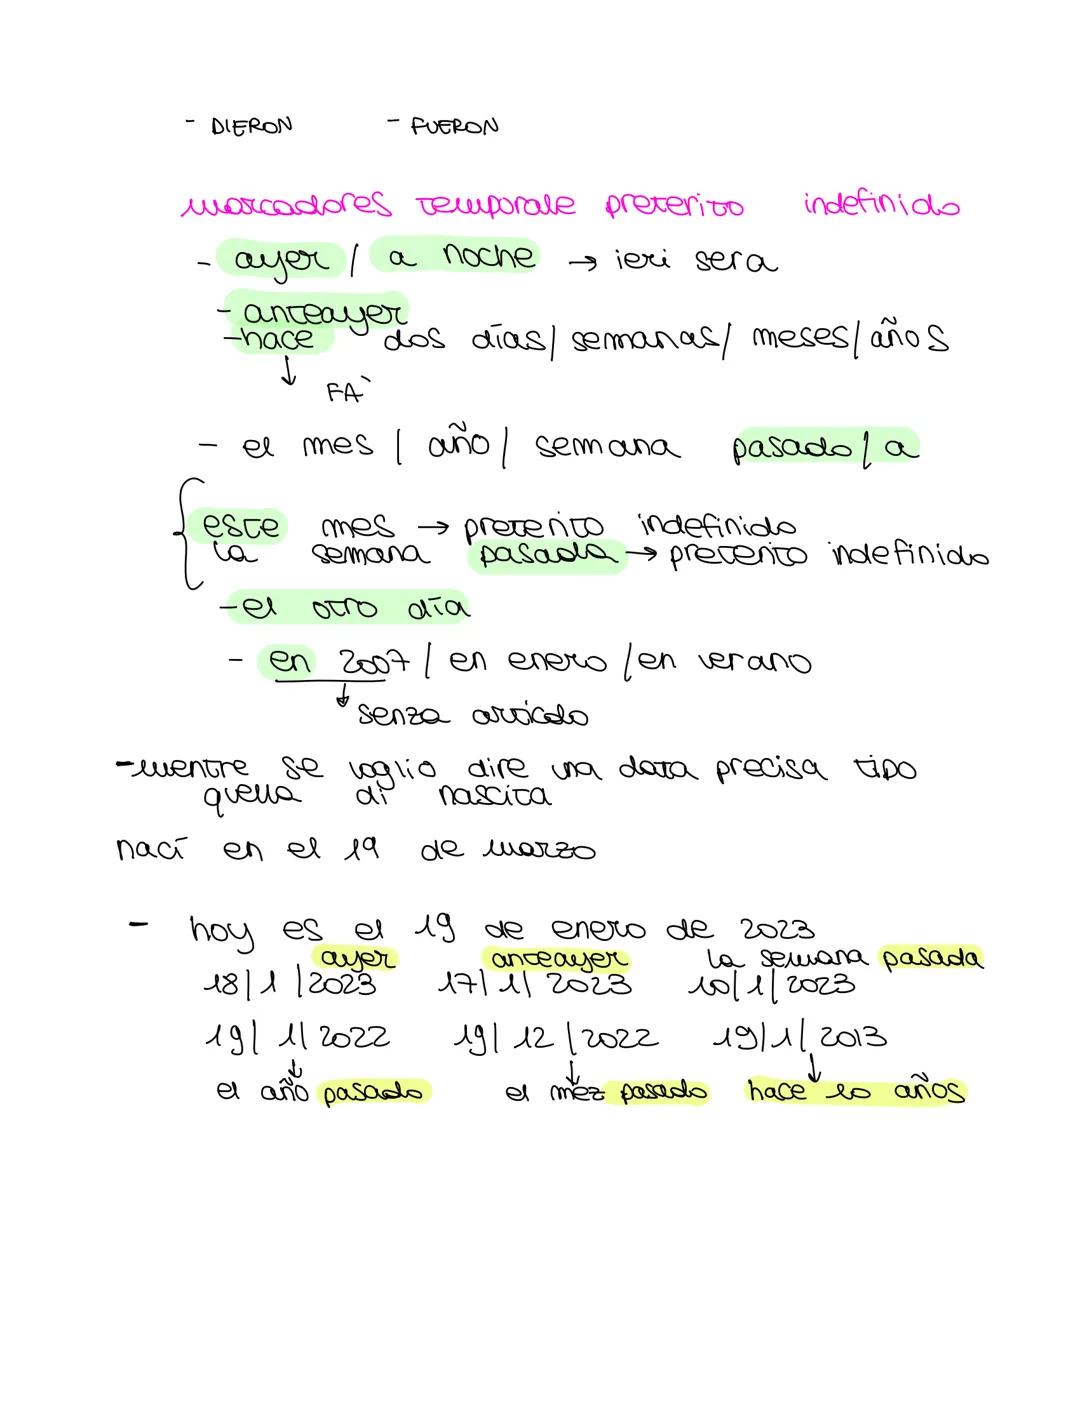 - DIERON - FUERON
marcadores temporale preterito indefinido
- ayer / a noche → ieri sera
- anteayer
- hace dos días/ semanas/ meses/ años
↓ FA`
- el mes / año/ semana pasado/a
este mes → preterito indefinido
la semana pasada → preterito indefinido
- el otro día
- en 2007 / en enero /en verano
↓ senza articolo
- mentre se voglio dire una data precisa tipo
quella di nascita
nací en el 19 de marzo
- hoy es el 19 de enero de 2023
ayer anteayer la semana pasada
18/1/2023 17/1/2023 10/1/2023
19/1/2022 19/12/2022 19/1/2013
↓ ↓ ↓
el año pasado el mez pasado hace 10 años